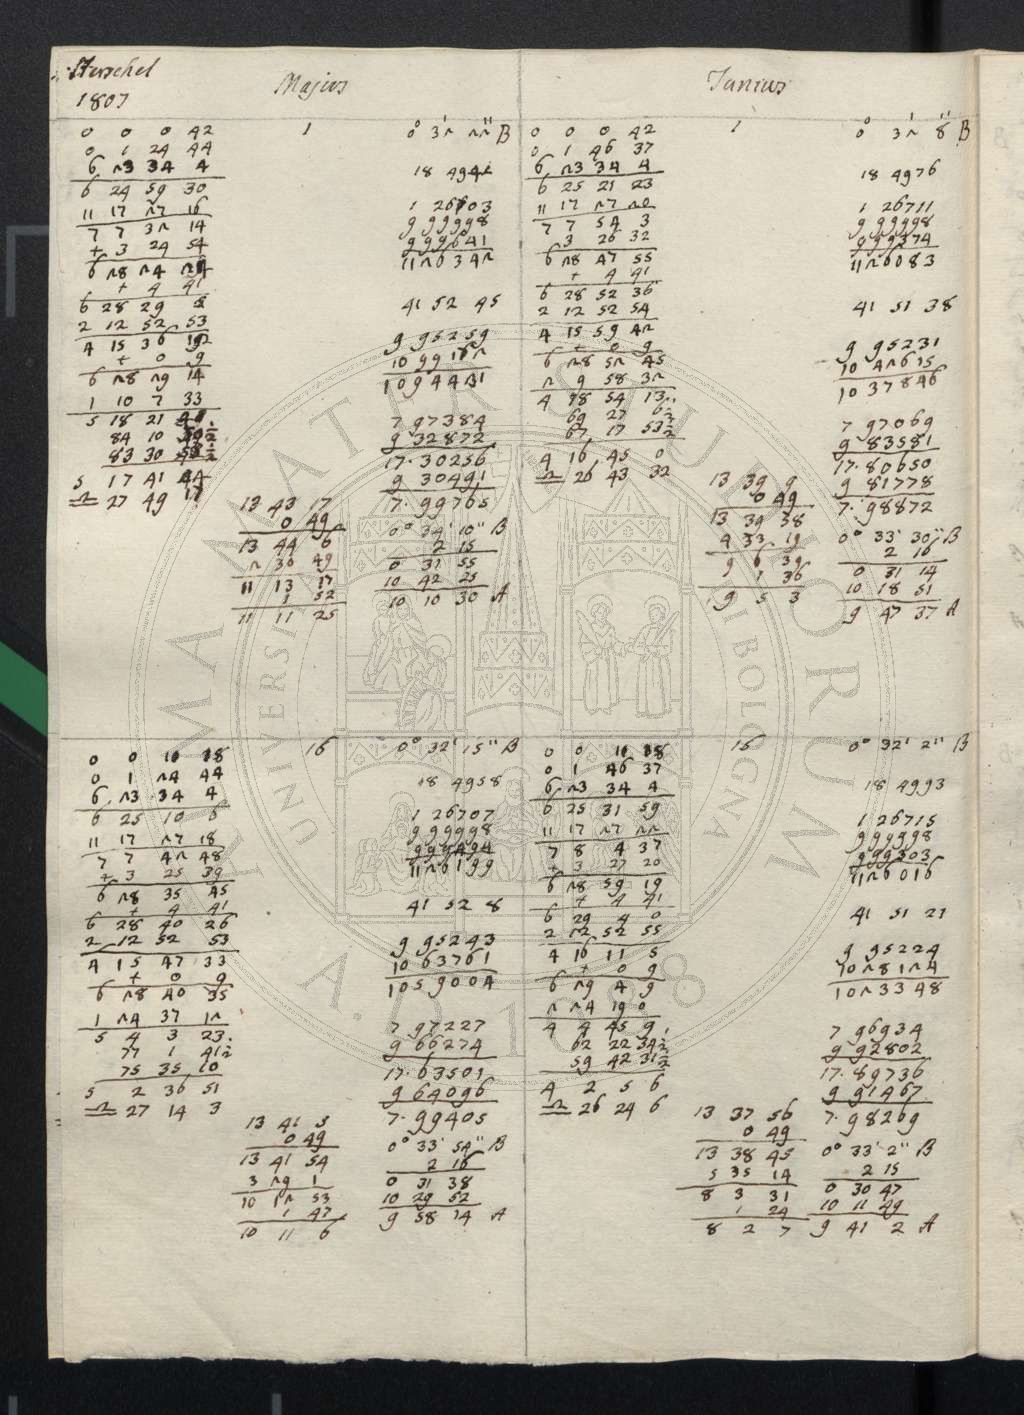 Herschel
1807
Majus
1
0° 32' 22" B
0 0 0 42
0 1 24 44
6 23 34 4
6 24 59 30
11 17 27 16
7 7 32 14
+ 3 24 54
6 28 24 24
+ 4 41
6 28 29 5
2 12 52 53
4 15 36 12
+ 0 9
6 28 29 14
1 10 7 33
5 18 21 41
84 10
83 30
5 17 41 44
♎ 27 49 17
18 4942
1 26703
9 99998
9 99641
11 26342
41 52 45
9 95259
10 99182
10 94441
7 97384
9 32872
17.30256
9 30491
7.99765
13 43 17
0 49
13 44 6
2 30 49
11 13 17
1 52
11 11 25
0° 34' 10" B
2 15
0 31 55
10 42 25
10 10 30 A
Junius
1
0° 32' 8" B
0 0 0 42
0 1 46 37
6 23 34 4
6 25 21 23
11 17 27 20
7 7 54 3
3 26 32
6 28 47 55
+ 4 41
6 28 52 36
2 12 52 54
4 15 59 42
+ 0 9
6 28 52 45
2 9 58 32
4 18 54 13
69 27 6½
67 17 53½
4 16 45 0
♎ 26 43 32
18 4976
1 26711
9 99998
9 99374
11 26083
41 51 38
9 95231
10 42615
10 37846
7 97069
9 83581
17.80650
9 81778
7.98872
13 39 9
0 49
13 39 38
4 33 19
9 6 39
1 36
9 5 3
0° 33' 30" B
2 16
0 31 14
10 18 51
9 47 37 A
16
0° 32' 15" B
0 0 10 38
0 1 24 44
6 23 34 4
6 25 10 6
11 17 27 18
7 7 42 48
+ 3 25 39
6 28 35 45
+ 4 41
6 28 40 26
2 12 52 53
4 15 47 33
+ 0 9
6 28 40 35
1 24 37 12
5 4 3 23
77 1 41½
75 35 10
5 2 36 51
♎ 27 14 3
18 4958
1 26707
9 99998
9 99494
11 26199
41 52 8
9 95243
10 63761
10 59004
7 97227
9 66274
17.63501
9 64096
7.99405
13 41 5
0 49
13 41 54
3 29 1
10 12 53
1 47
10 11 6
0° 33' 54" B
2 16
0 31 38
10 29 52
9 58 14 A
16
0° 32' 2" B
0 0 10 38
0 1 46 37
6 23 34 4
6 25 31 59
11 17 27 22
7 8 4 37
+ 3 27 20
6 28 59 19
+ 4 41
6 29 4 0
2 12 52 55
4 16 11 5
+ 0 9
6 29 4 9
2 24 19 0
4 4 45 9
62 22 34½
59 42 31½
4 2 5 6
♎ 26 24 6
18 4993
1 26715
9 99998
9 99303
11 26016
41 51 21
9 95224
10 28124
10 23348
7 96934
9 92802
17.89736
9 91467
7.98269
13 37 56
0 49
13 38 45
5 35 14
8 3 31
1 24
8 2 7
0° 33' 2" B
2 15
0 30 47
10 11 49
9 41 2 A